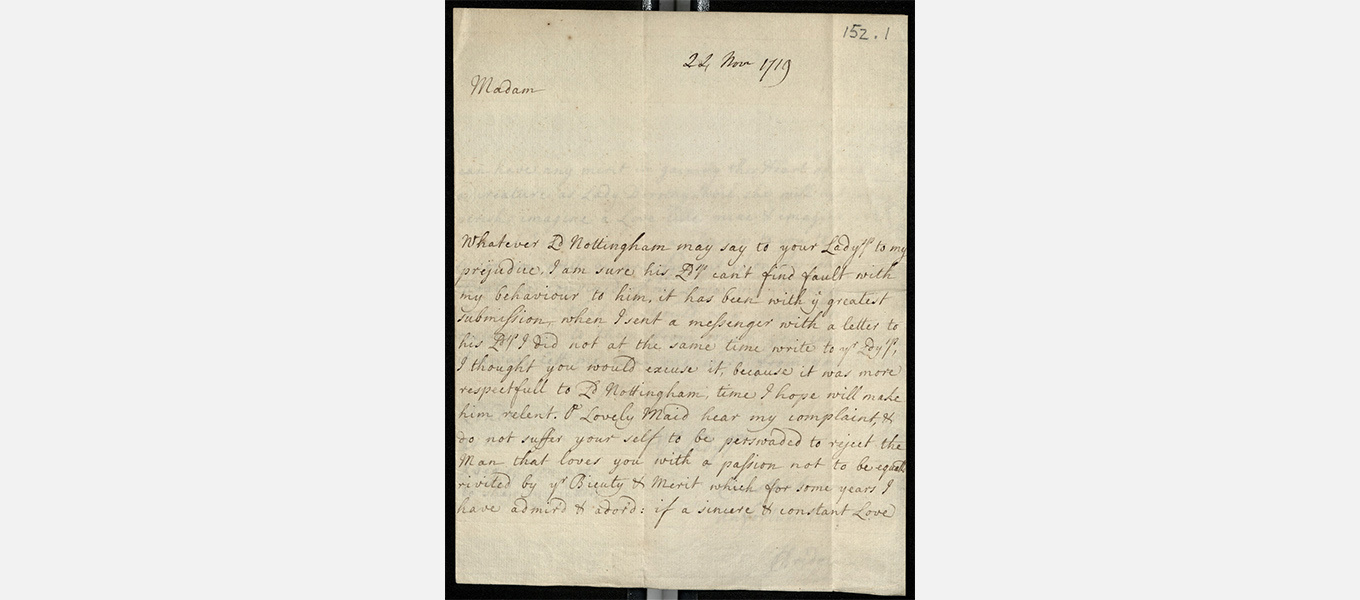 152.1
22 Nov 1719
Madam
Whatever Ld Nottingham may say to your Ladysp to my
prejudice, I am sure his Ldsp can't find fault with
my behaviour to him, it has been with ye greatest
submission, when I sent a messenger with a letter to
his Ldsp I did not at the same time write to yr Ldysp,
I thought you would excuse it, because it was more
respectfull to Ld Nottingham, time I hope will make
him relent. O Lovely Maid hear my complaint, &
do not suffer your self to be perswaded to reject the
Man that loves you with a passion not to be equall
rivited by yr Bieuty & Merit which for some years I
have admir'd & ador'd: if a sincere & constant Love